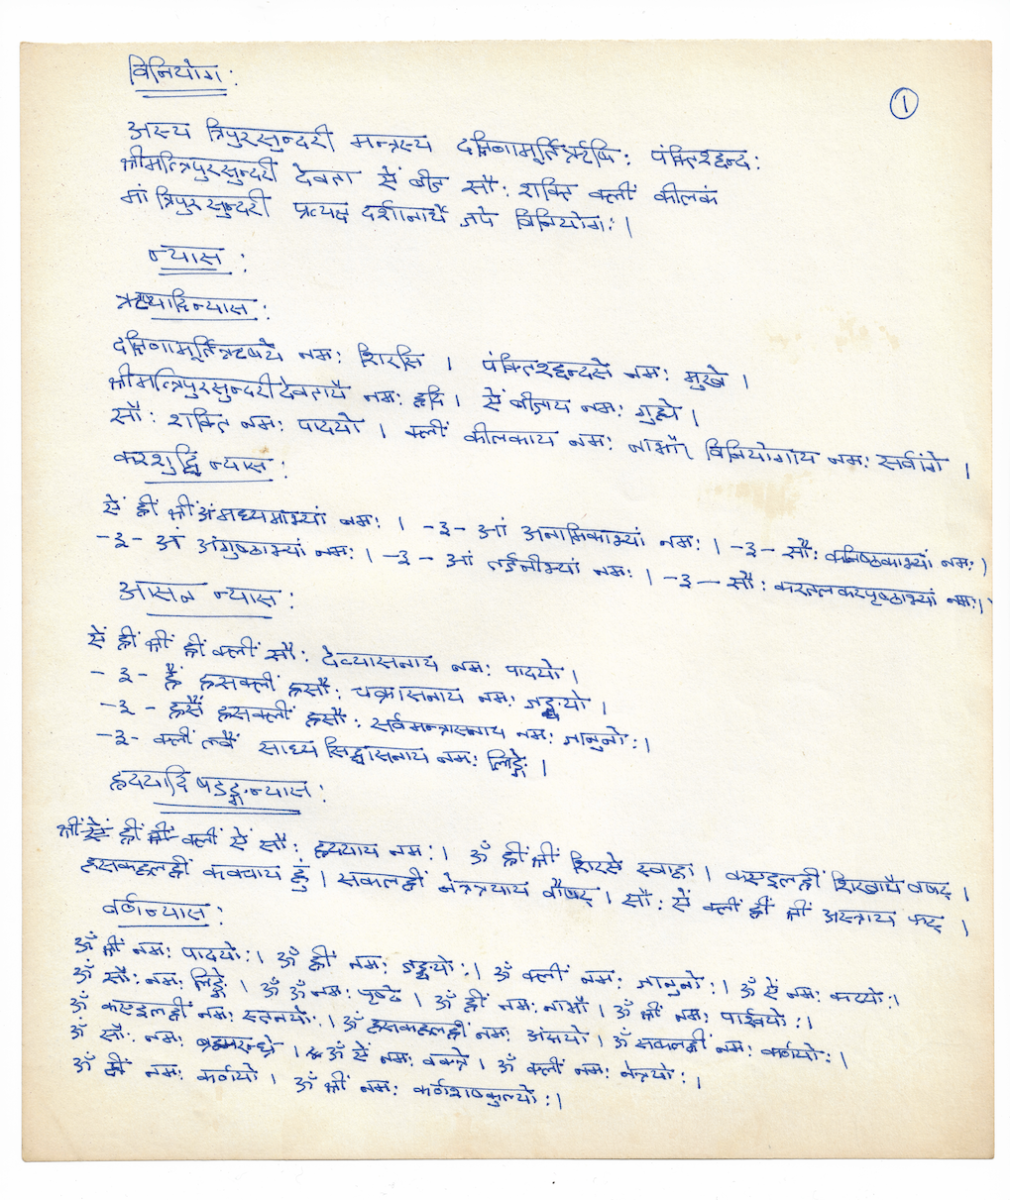 विनियोग:
१
अस्य त्रिपुरसुन्दरी मन्त्रस्य दक्षिणामूर्तिर्ऋषि: पंक्तिश्छन्द:
श्रीमत्त्रिपुरसुन्दरी देवता ऐं बीज सौ: शक्ति क्लीं कीलकं
मां त्रिपुरसुन्दरी प्रत्यक्ष दर्शनार्थे जपे विनियोग: ।
न्यास :
ऋष्यादिन्यास :
दक्षिणामूर्तिऋषये नम: शिरसि । पंक्तिश्छन्दसे नम: मुखे ।
श्रीमत्त्रिपुरसुन्दरीदेवतायै नम: हृदि । ऐं बीजाय नम: गुह्ये ।
सौ: शक्ति नम: पादयो । क्लीं कीलकाय नम: नाभौ। विनियोगाय नम: सर्वांगे ।
करशुद्धि न्यास :
ऐं ह्रीं श्रीं अंमध्यमाभ्यां नम: । -३- आं अनामिकाभ्यां नम: । -३- सौ: कनिष्ठकाभ्यां नम: ।
-३- अं अंगुष्ठाभ्यां नम: । -३- आं तर्जनीभ्यां नम: । -३- सौ: करतलकरपृष्ठाभ्यां नम: ।
आसन न्यास :
ऐं ह्रीं श्रीं ह्रीं क्लीं सौ: देव्यासनाय नम: पादयो ।
-३- हैं हसक्लीं हसौ: चक्रासनाय नम: जङ्घयो ।
-३- हसैं हसक्लीं हसौ: सर्वमन्त्रासनाय नम: जानुनो: ।
-३- क्लीं साध्य सिद्धासनाय नम: लिङ्गे ।
हृदयादि षडङ्गन्यास :
श्रीं ह्रीं क्लीं ऐं सौ: हृदयाय नम: । ॐ ह्रीं श्रीं शिरसे स्वाहा । कएइलह्रीं शिखायै वषट् ।
हसकहलह्रीं कवचाय हुं । सकलह्रीं नेत्रत्रयाय वौषट् । सौ: ऐं क्लीं ह्रीं श्रीं अस्त्राय फट् ।
वर्णन्यास :
ॐ श्रीं नम: पादयो: । ॐ ह्रीं नम: जङ्घयो: । ॐ क्लीं नम: जानुनो: । ॐ ऐं नम: कट्यो: ।
ॐ सौ: नम: लिङ्गे । ॐ ॐ नम: पृष्ठे । ॐ ह्रीं नम: नाभौ । ॐ श्रीं नम: पार्श्वयो: ।
ॐ कएइलह्रीं नम: स्तनयो: । ॐ हसकहलह्रीं नम: अंसयो । ॐ सकलह्रीं नम: कर्णयो: ।
ॐ सौ: नम: ब्रह्मरन्ध्रे । ॐ ऐं नम: वक्त्रे । ॐ क्लीं नम: नेत्रयो: ।
ॐ ह्रीं नम: कर्णयो । ॐ श्रीं नम: कर्णशष्कुल्यो: ।